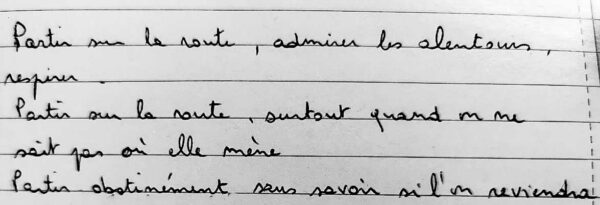 Partir sur la route, admirer les alentours,
respirer.
Partir sur la route, surtout quand on ne
sait pas où elle mène
Partir obstinément sans savoir si l'on reviendra